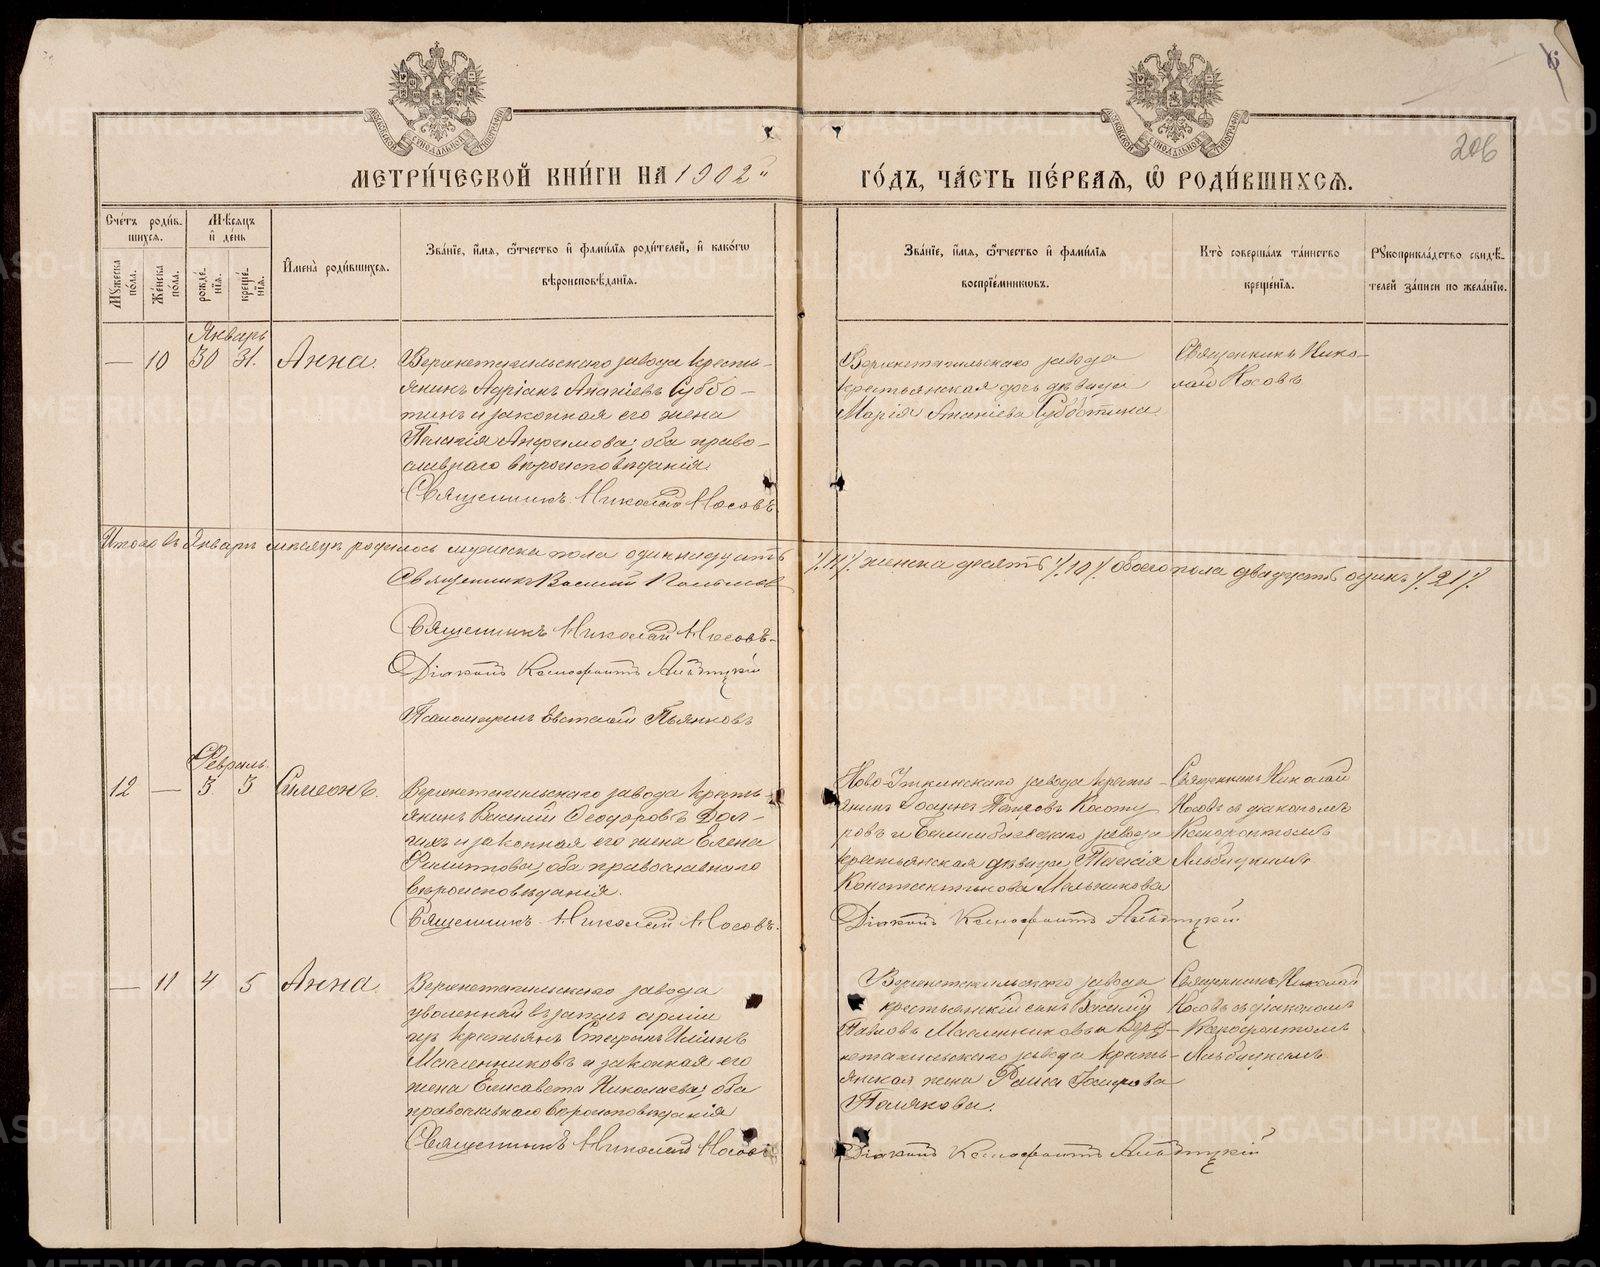 6
206
МЕТРИ́ЧЕСКОЙ КНИ́ГИ НА 1902й
ГО́ДЪ, ЧА́СТЬ ПЕ́РВАѦ, Ѡ҆ РОДИ́ВШИХСѦ.
Сче́тъ роди́в-
шихсѧ.
Мѣ́сѧцъ
и҆ де́нь
И҆мена̀ роди́вшихсѧ.
Зва́нїе, и҆́мѧ, ѻ҆́тчество и҆ фами́лїѧ роди́телей, и҆ како́гѡ
вѣроисповѣ́данїѧ.
Мꙋ́жеска по́ла.
Же́нска по́ла.
рожде́нїѧ.
креще́нїѧ.
Зва́нїе, и҆́мѧ, ѻ҆́тчество и҆ фами́лїѧ
воспрїе́мниковъ.
Кто̀ соверша́лъ та́инство
креще́нїѧ.
Рꙋкоприкла́дство свидѣ́-
телей за́писи по жела́нїю.
Январь
— 10 30 31. Анна.
Верхнетагильскаго завода кресть-
янинъ Адріанъ Ананіевъ Суббо-
тинъ и законная его жена
Пелагія Анфимова; оба право-
славнаго вѣроисповѣданія.
Священникъ Николай Носовъ
Верхнетагильскаго завода
крестьянская дочь дѣвица
Марія Ананіева Субботина
Священникъ Нико-
лай Носовъ
Итого въ Январѣ мѣсяцѣ родилось мужеска пола одиннадцать /. 11 /. женска десять /. 10 /. обоего пола двадцать одинъ /. 21 /.
Священникъ Василій
Священникъ Николай Носовъ
Діаконъ Ксенофонтъ Альбицкій
Псаломщикъ Евгеній Пьянковъ
Февраль.
12 — 3 3 Симеонъ.
Верхнетагильскаго завода кресть-
янинъ Василій Ѳеодоровъ Дол-
гихъ и законная его жена Елена
Филиппова; оба православнаго
вѣроисповѣданія.
Священникъ Николай Носовъ.
Ново-Уткинскаго завода кресть-
янинъ Іоаннъ Петровъ
ровъ и Билимбаевскаго завода
крестьянская дѣвица Таисія
Константинова Мельникова
Діаконъ Ксенофонтъ Альбицкій
Священникъ Николай
Носовъ съ діакономъ
Ксенофонтомъ
Альбицкимъ
— 11 4 5 Анна.
Верхнетагильскаго завода
уволенный въ запасъ арміи
изъ крестьянъ Стефанъ Ильинъ
Масленниковъ и законная его
жена Елисавета Николаева; оба
православнаго вѣроисповѣданія
Священникъ Николай Носовъ
Верхнетагильскаго завода
крестьянскій сынъ Василій
Павловъ Масленниковъ и Верх-
нетагильскаго завода кресть-
янская жена Раиса
Полякова.
Діаконъ Ксенофонтъ Альбицкій
Священникъ Николай
Носовъ съ діакономъ
Ксенофонтомъ
Альбицкимъ
METRIKI.GASO-URAL.RU